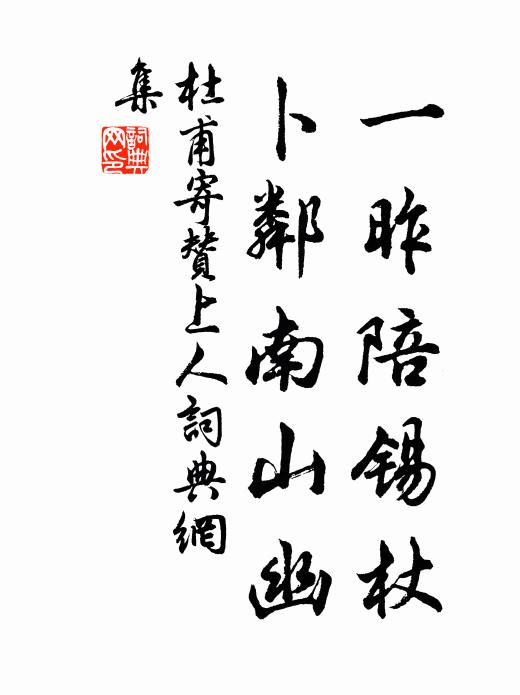 一昨陪锡杖
卜鄰南山幽
杜甫寄贊上人詞典網
集
詞典
网印